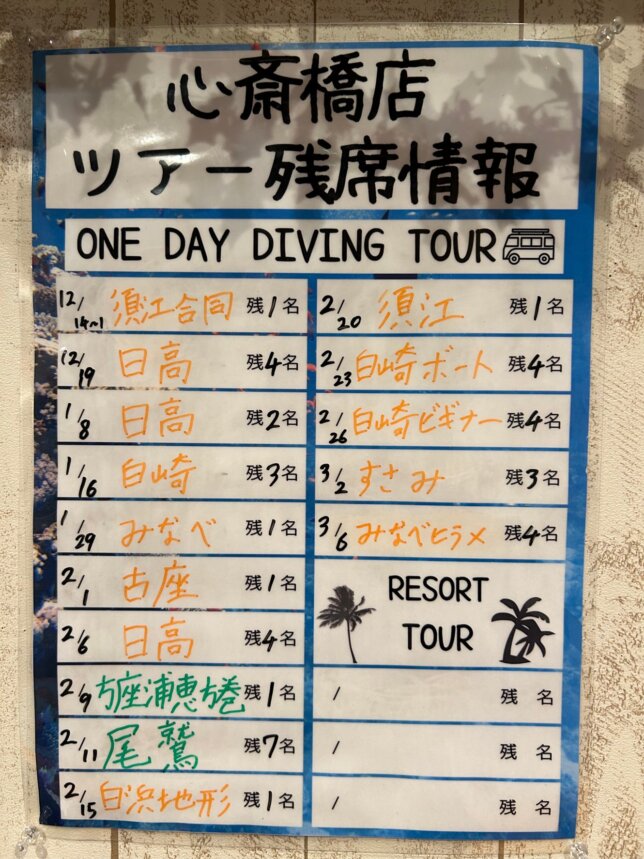 心斎橋店
ツアー残席情報
ONE DAY DIVING TOUR
12/14~1 須江合同 残1名
12/19 日高 残4名
1/8 日高 残2名
1/16 白崎 残3名
1/29 みなべ 残1名
2/1 古座 残1名
2/6 日高 残4名
2/9 残1名
2/11 尾鷲 残7名
2/15 白浜地形 残1名
2/20 須江 残1名
2/23 白崎ボート 残4名
2/26 白崎ビギナー 残4名
3/2 すさみ 残3名
3/6 みなべヒラメ 残4名
RESORT
TOUR
/ 残 名
/ 残 名
/ 残 名